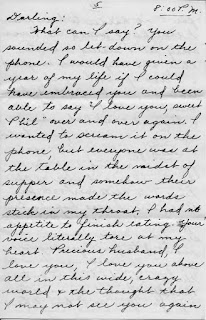 5
8:00 P.M.
Darling:
What can I say? You
sounded so let down on the
phone. I would have given a
year of my life if I could
have embraced you and been
able to say "I love you, sweet
Phil" over and over again. I
wanted to scream it on the
phone, but everyone was at
the table in the midst of
supper and somehow their
presence made the words
stick in my throat. I had no
appetite to finish eating. Your
voice literally tore at my
heart. Precious husband, I
love you, I love you above
all in this wide, crazy
world & the thought that
I may not see you again